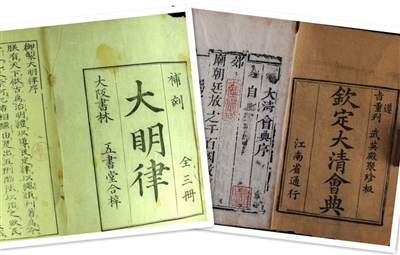 補刻 全三冊
大明律
大阪書林 五書堂合梓
御製大明律序
朕有天下倣古為治明禮以導民定律以繩頑刊著為令
旨重刊 武英殿聚珍板
欽定大清會典
江南省通行
大清會典序
自
郊
廟朝廷放之千百國